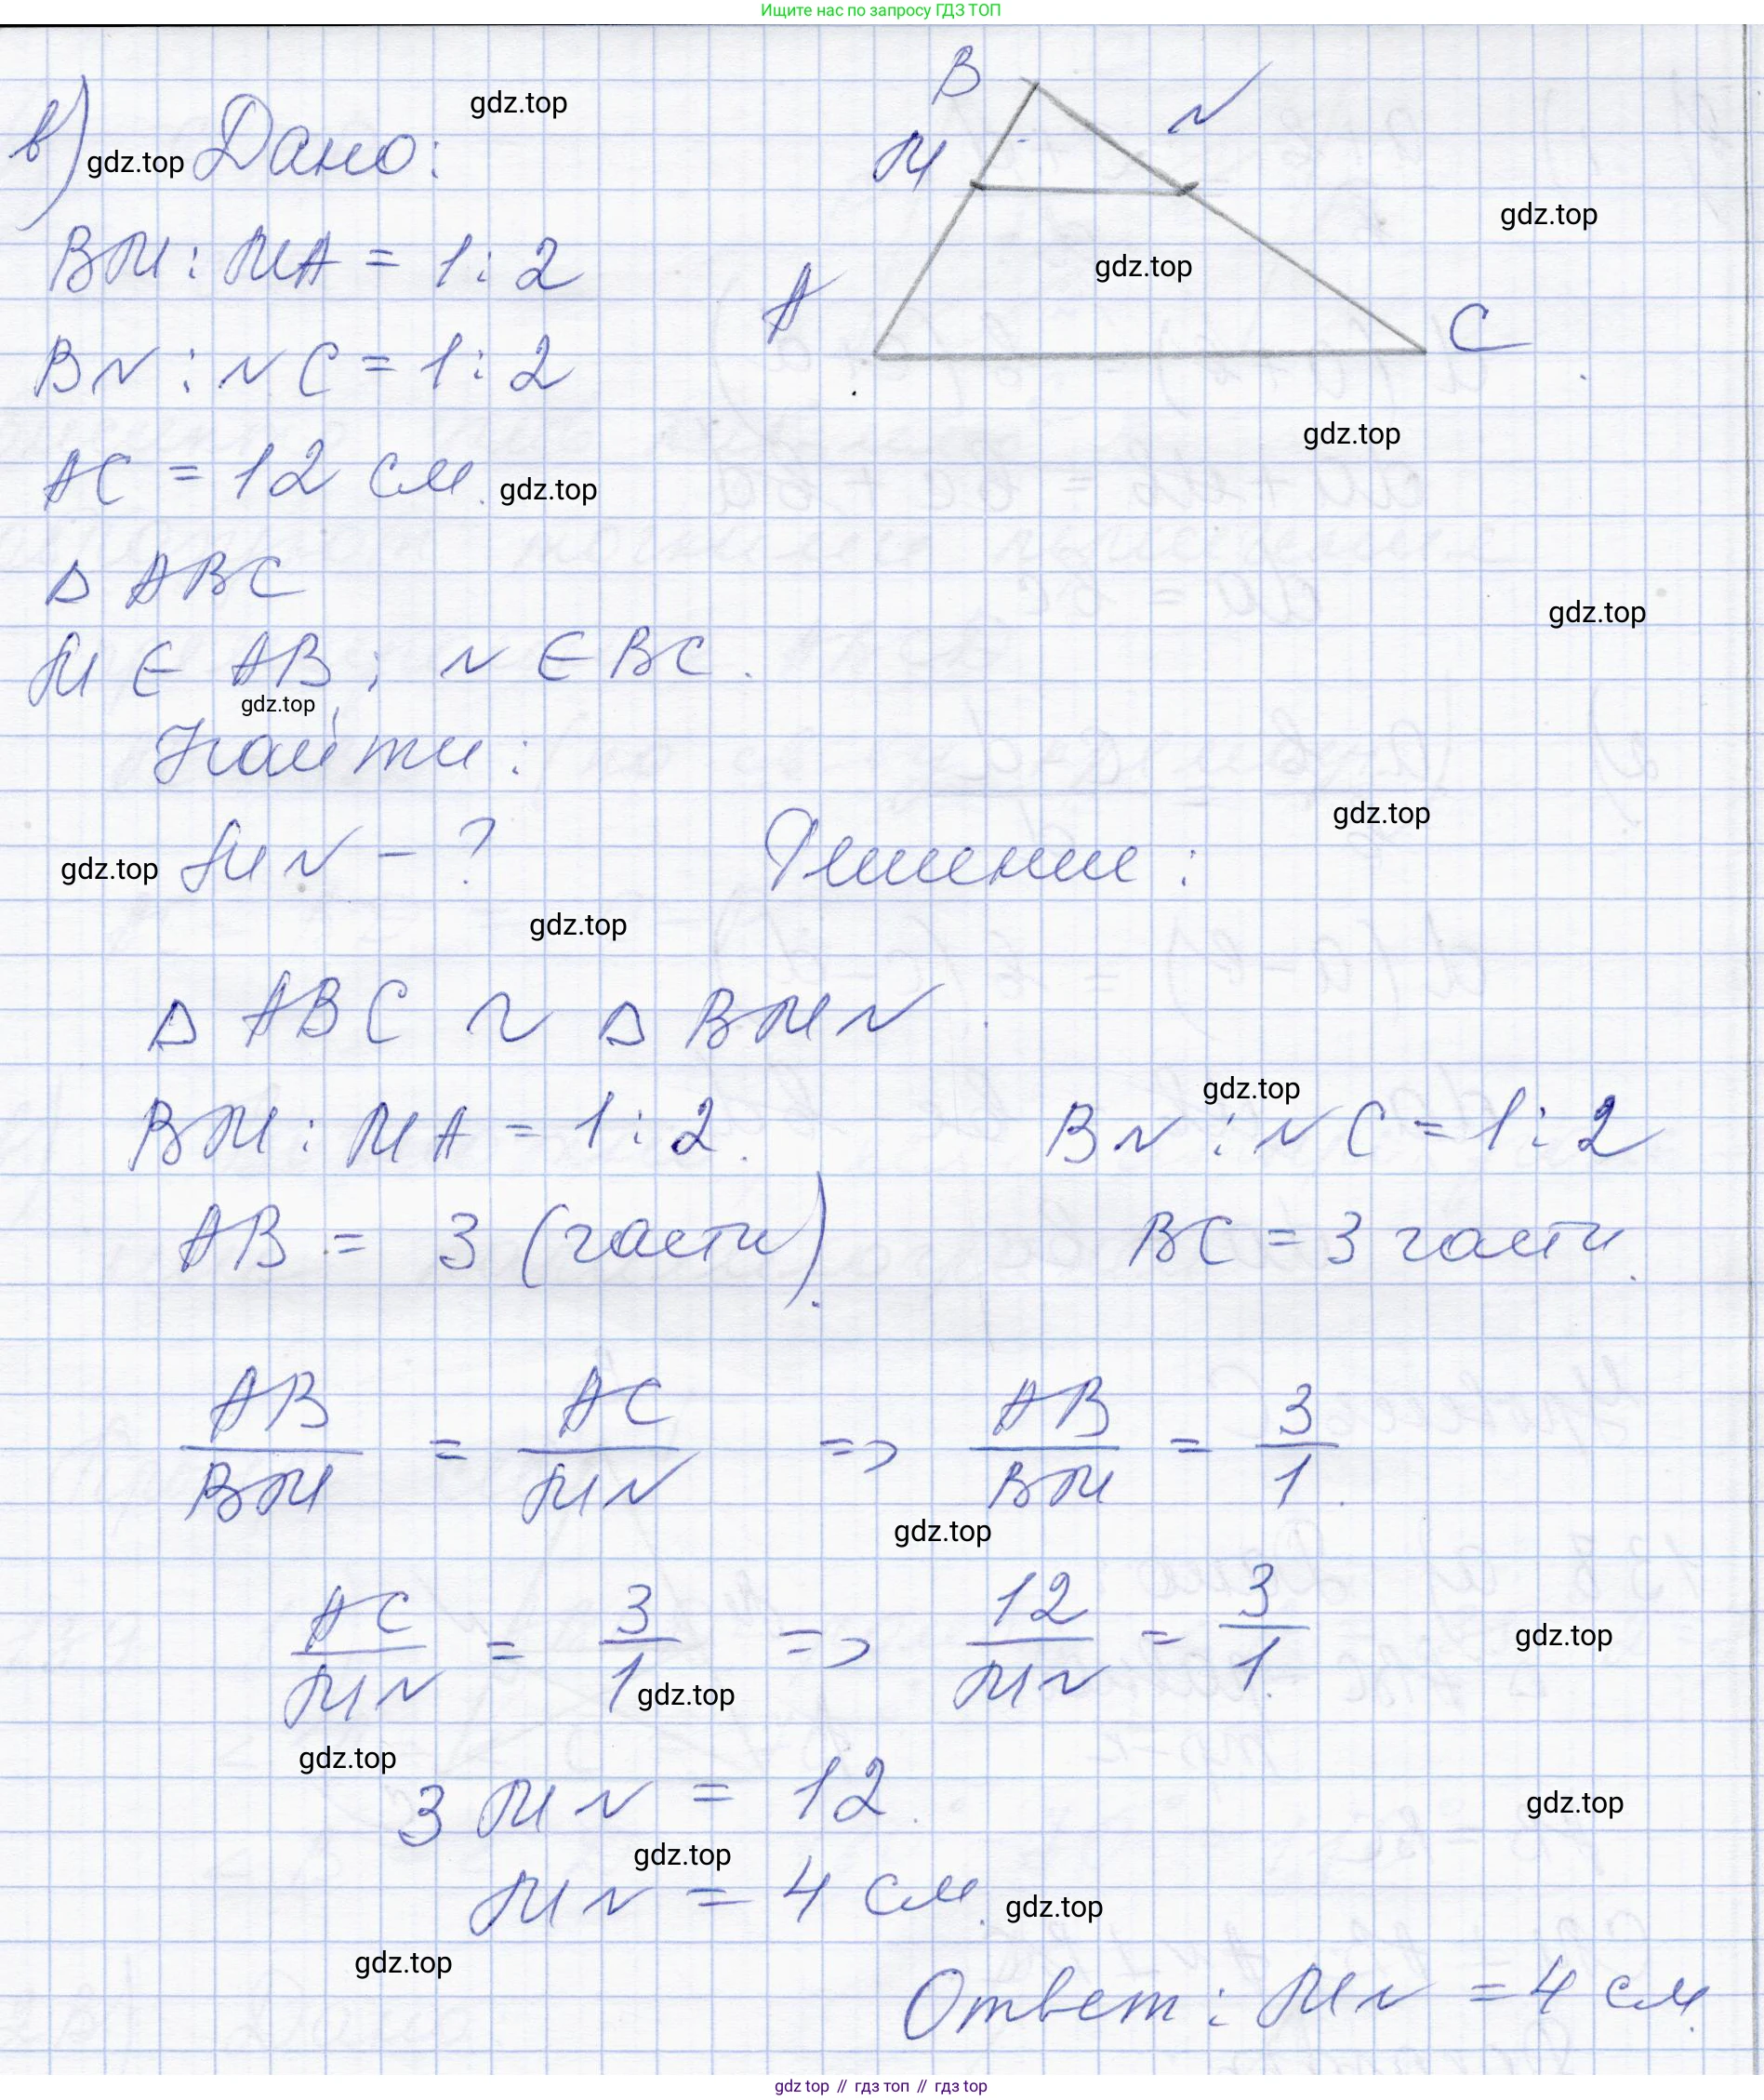 Ищите нас по запросу ГДЗ ТОП
B
N
в) Дано:
gdz.top
gdz.top
M
gdz.top
BM : MA = 1 : 2
gdz.top
A
C
BN : NC = 1 : 2
gdz.top
AC = 12 см.
gdz.top
△ ABC
gdz.top
M ∈ AB ; N ∈ BC.
gdz.top
Найти:
gdz.top
MN - ?
Решение:
gdz.top
gdz.top
△ ABC ~ △ BMN.
gdz.top
BM : MA = 1 : 2.
BN : NC = 1 : 2
AB = 3 (части).
BC = 3 части.
AB/BM = AC/MN => AB/BM = 3/1.
gdz.top
AC/MN = 3/1 => 12/MN = 3/1.
gdz.top
gdz.top
gdz.top
3 MN = 12.
gdz.top
gdz.top
MN = 4 см.
gdz.top
gdz.top
Ответ: MN = 4 см.
gdz top // гдз топ // гдз top